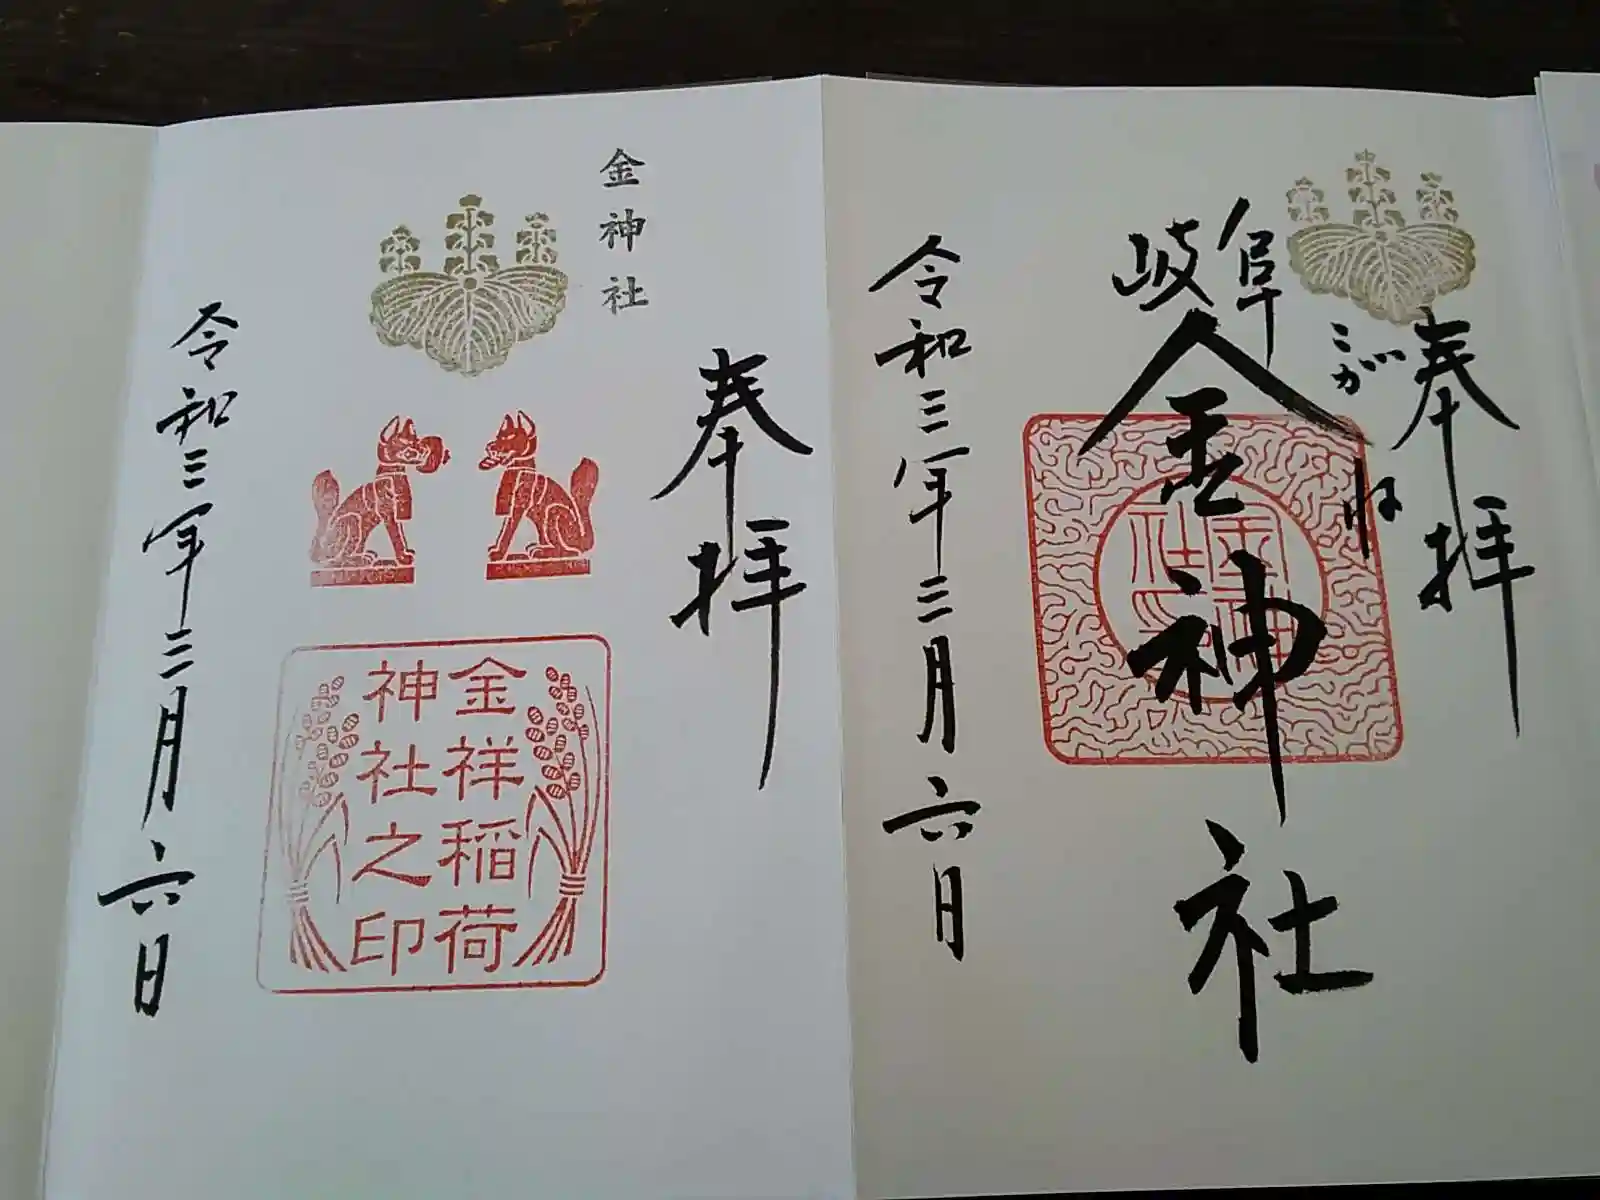 奉拝
こがね
岐阜
金神社
金神社
令和三年三月六日
金神社
奉拝
金祥稲荷
神社之印
令和三年三月六日